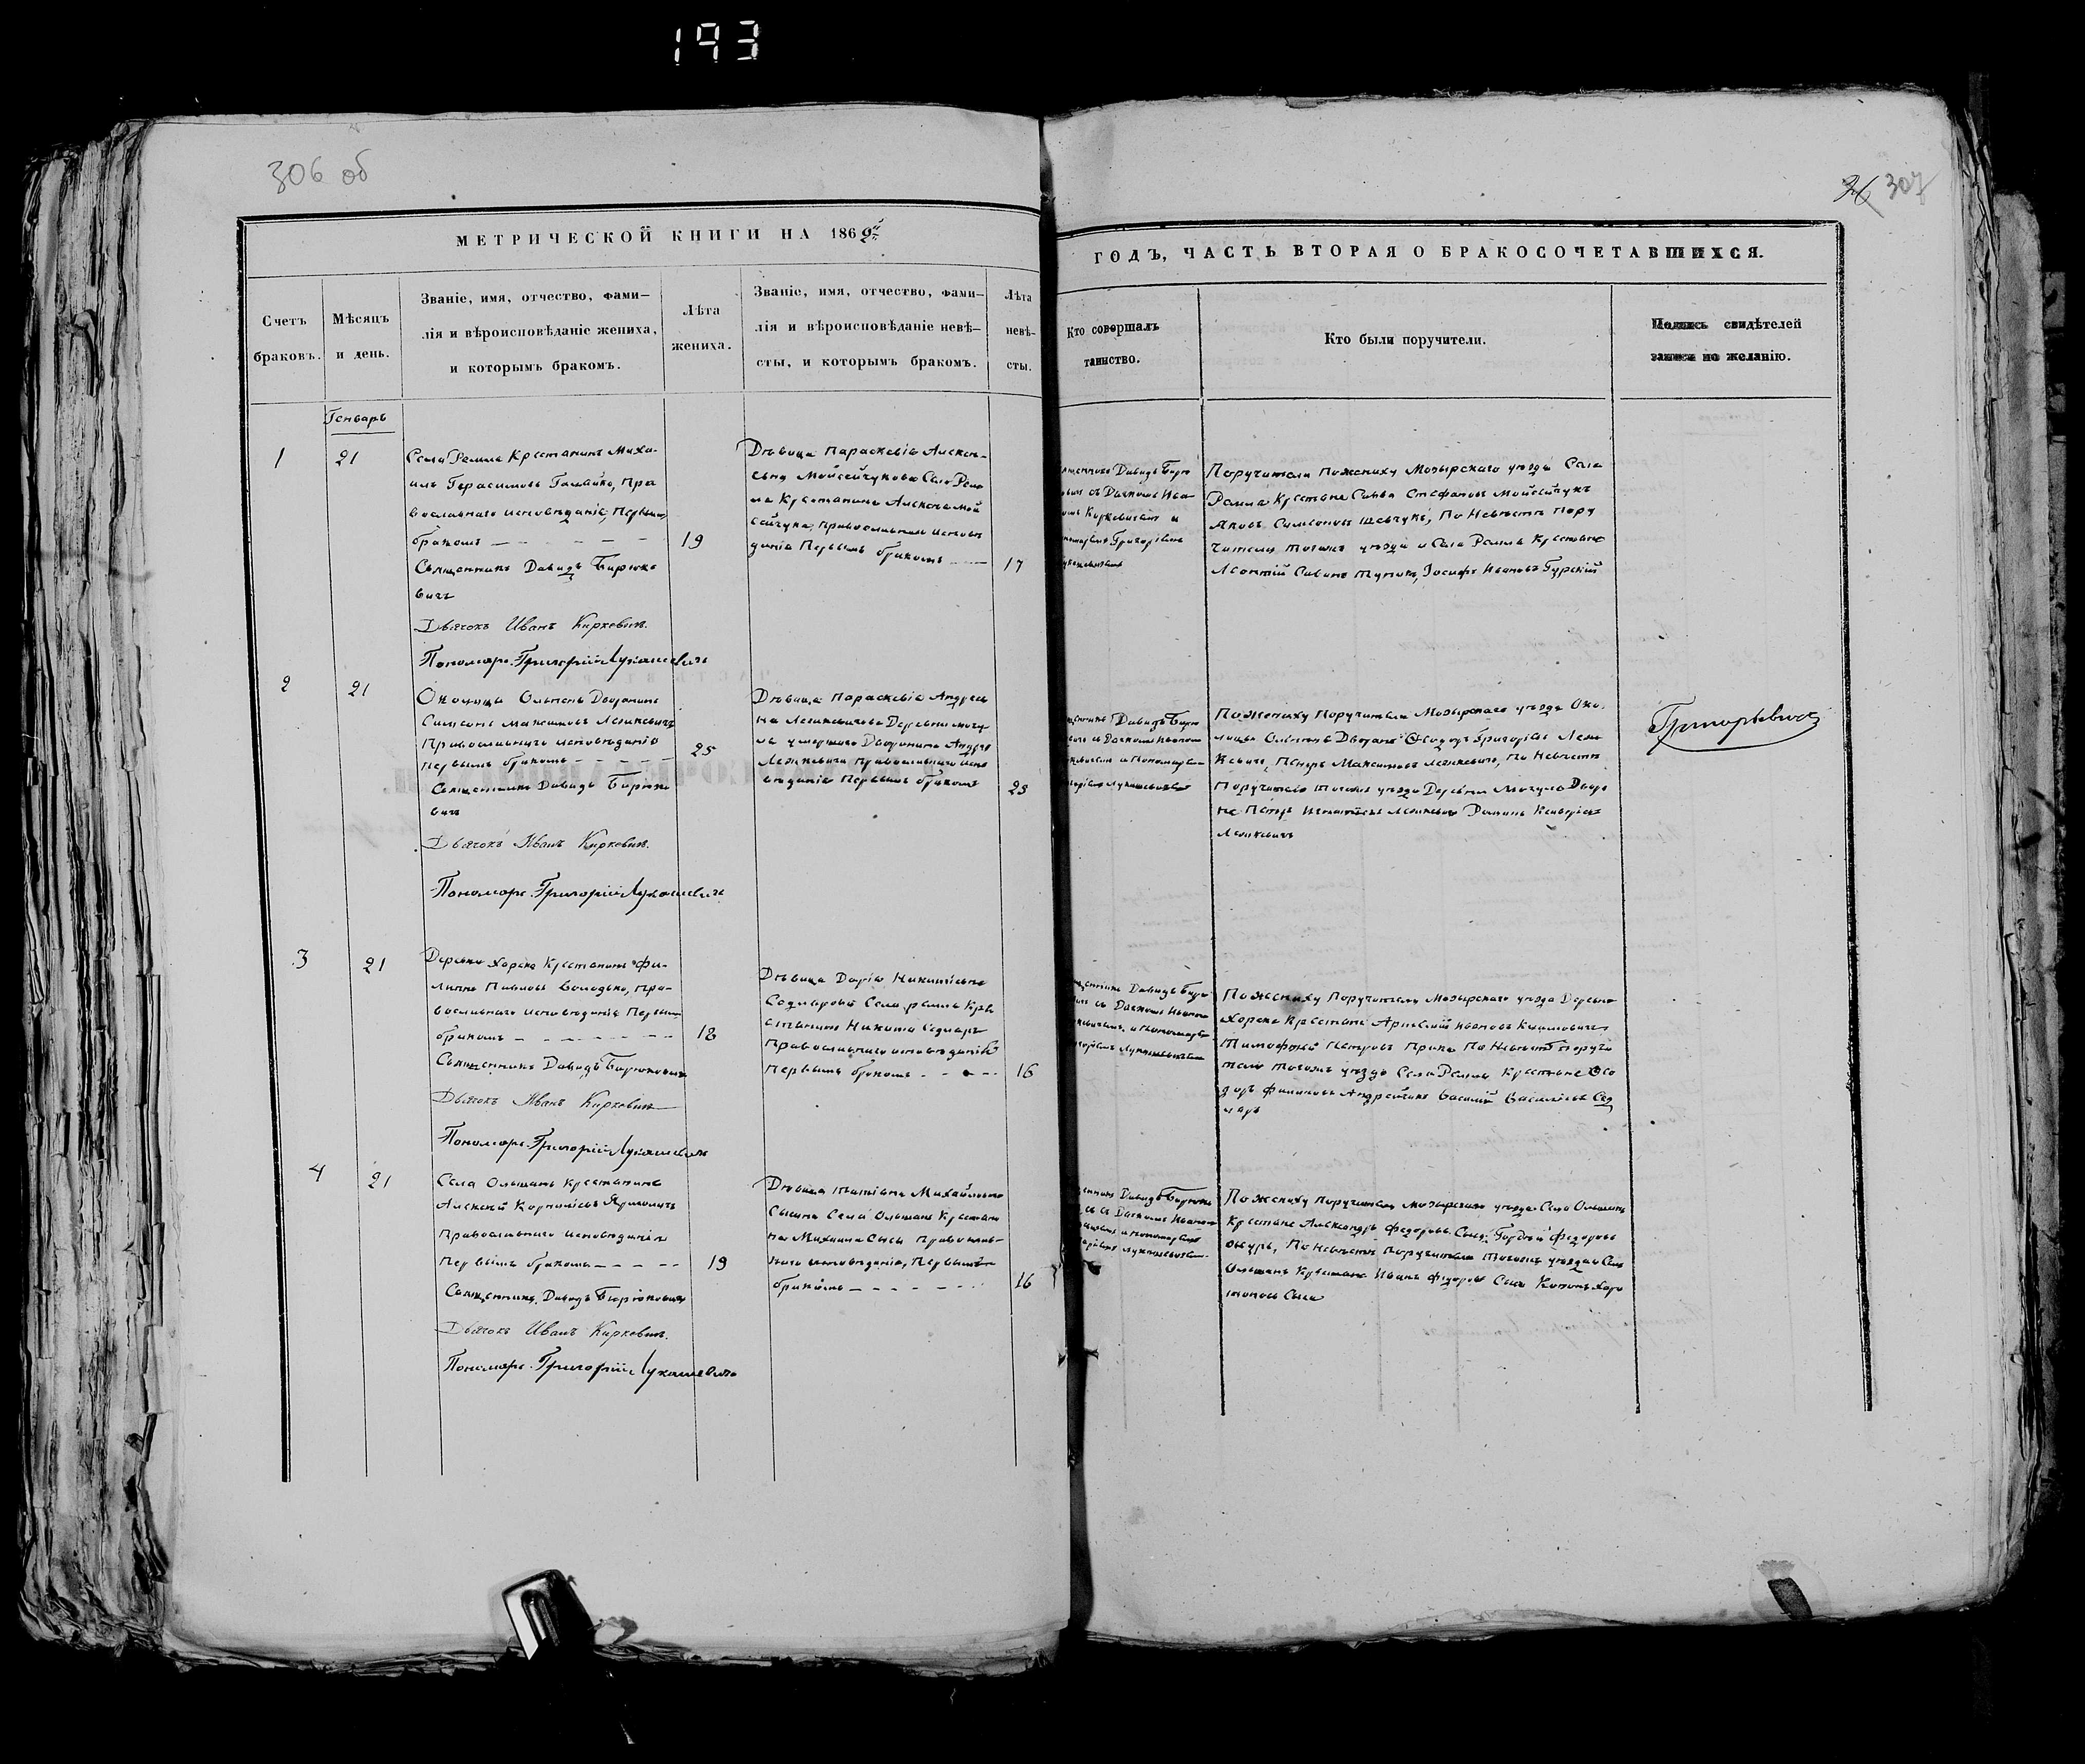 193
306 об
36 307
МЕТРИЧЕСКОЙ КНИГИ НА 1862й
ГОДЪ, ЧАСТЬ ВТОРАЯ О БРАКОСОЧЕТАВШИХСЯ.
Счетъ
браковъ.
Мѣсяцъ
и день.
Званіе, имя, отчество, фами-
лія и вѣроисповѣданіе жениха,
и которымъ бракомъ.
Лѣта
жениха.
Званіе, имя, отчество, фами-
лія и вѣроисповѣданіе невѣ-
сты, и которымъ бракомъ.
Лѣта
невѣ-
сты.
Кто совершалъ
таинство.
Кто были поручители.
Подпись свидѣтелей
записи по желанію.
Генварь
1
21
Села Ремля Крестьянинъ Миха-
илъ Герасимовъ пра
вославнаго исповѣданія, Первымъ
бракомъ
19
Священникъ Давидъ Бирюко
вичъ
Дьячокъ Иванъ Киркевичъ.
Пономарь Григорій Лукашевичъ
Дѣвица Параскевія Алексѣ-
ева Мойсейчукова Села Рем
ля Крестьянина Алексѣя Мой
сейчука, православнаго исповѣ
данія Первымъ бракомъ
17
Давидъ Бирю
съ Дьячкомъ Ива
Киркевичемъ и
Григоріемъ
Поручители по жениху Мозырскаго уѣзда Села
Ремля Крестьяне Савва Стефановъ Мойсейчукъ
Яковъ Симеоновъ Шевчукъ, По Невѣстѣ пору
чители тогожъ уѣзда и Села Ремля Крестьяне
Леонтій Савинъ Іосифъ Ивановъ Гурскій
2
21
Околицы Ольпень Дворянинъ
Симеонъ Максимовъ Ленкевичъ
Православнаго исповѣданія
первымъ бракомъ
25
Священникъ Давидъ Бирюко
вичъ
Дьячокъ Иванъ Киркевичъ.
Пономарь Григорій Лукашевичъ
Дѣвица Параскевія Андрее
ва Ленкевичова Деревни
умершаго Дворянина Андрея
Ленкевича Православнаго испо
вѣданія Первымъ бракомъ
23
Давидъ Бирю
и Дьячкомъ Иваномъ
и Пономаремъ
Лукашевичемъ
По жениху Поручители Мозырскаго уѣзда Око-
лицы Ольпень Дворяне Феодоръ Григоріевъ Лен-
кевичъ, Петръ Максимовъ Ленкевичъ, По Невѣстѣ
Поручители тогожъ уѣзда Деревни Дворя
не Петръ Игнатіевъ Ленкевичъ Романъ
Ленкевичъ
Григорьевичъ
3
21
Деревни Хорска Крестьянинъ Фи-
липпъ Павловъ Володько, пра-
вославнаго исповѣданія Первымъ
бракомъ
18
Священникъ Давидъ Бирюковичъ
Дьячокъ Иванъ Киркевичъ
Пономарь Григорій Лукашевичъ
Дѣвица Дарія Никитіевна
Села Ремля Кре
стьянина Никиты
Православнаго исповѣданія
Первымъ бракомъ
16
Давидъ Бирю
съ Дьячкомъ Иваномъ
и Пономаремъ
Лукашевичемъ
По жениху Поручители Мозырскаго уѣзда Деревни
Хорска Крестьяне Ивановъ Климовичъ
Тимофѣй Петровъ По Невѣстѣ Поручи
тели тогожъ уѣзда Села Ремля Крестьяне Фео
доръ Филиповъ Василій Василіевъ
4
21
Села Ольшанъ Крестьянинъ
Алексѣй Корниліевъ Ярмоличъ
Православнаго исповѣданія
Первымъ бракомъ
19
Священникъ Давидъ Бирюковичъ
Дьячокъ Иванъ Киркевичъ.
Пономарь Григорій Лукашевичъ
Дѣвица Татіана Михайловна
Сысина Села Ольшанъ Крестьяни
на Михаила Сысы Православ-
наго исповѣданія, Первымъ
бракомъ
16
Давидъ Бирюко
съ Дьячкомъ Иваномъ
и пономаремъ
Лукашевичемъ
По жениху Поручители Мозырскаго уѣзда Села Ольшанъ
Крестьяне Александръ Федоровъ Гордѣй Федоровъ
По невѣстѣ поручители тогожъ уѣзда и Села
Ольшанъ Крестьяне Иванъ Федоровъ Сыса
Сыса